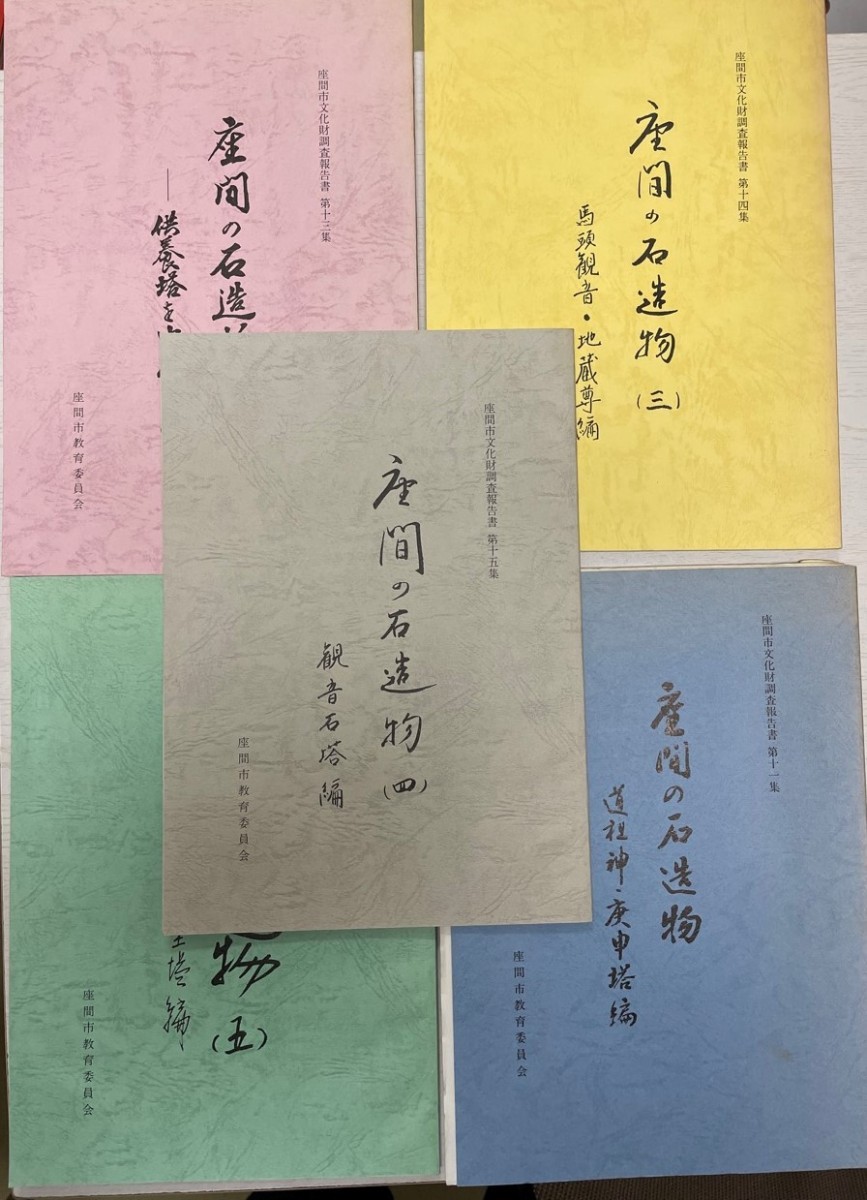 座間市文化財調査報告書 第十三集
座間の石造
供養塔を
座間市教育委員会
座間市文化財調査報告書 第十四集
座間の石造物(三)
馬頭観音・地蔵尊編
座間市文化財調査報告書 第十五集
座間の石造物(四)
観音石塔編
座間市教育委員会
物(五)
塔編
座間市教育委員会
座間市文化財調査報告書 第十一集
座間の石造物
道祖神・庚申塔編
座間市教育委員会